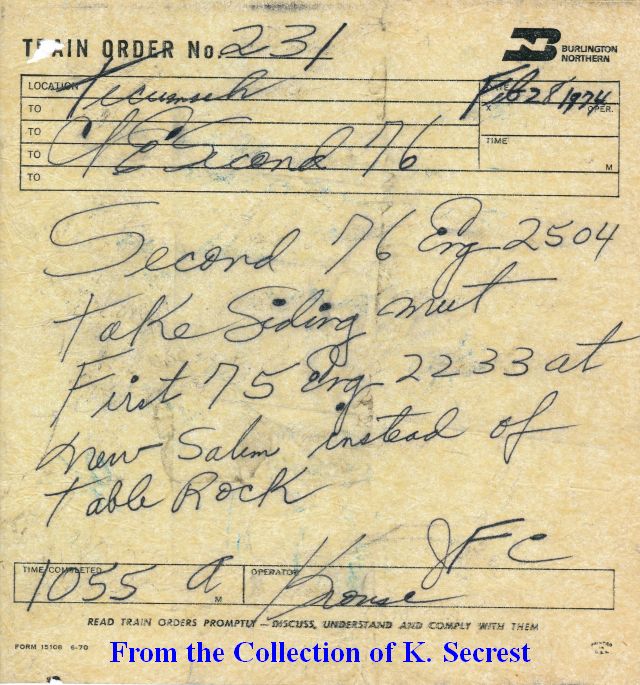 TRAIN ORDER No. 231
BURLINGTON
NORTHERN
LOCATION Tecumseh
DATE Feb 28 1974
TO
OPER.
TO C&E Second 76
TIME
TO
M
TO
Second 76 Eng 2504
take Siding meet
First 75 Eng 2233 at
new Salem instead of
table Rock
JFC
TIME COMPLETED 1055 a M
OPERATOR Krouse
READ TRAIN ORDERS PROMPTLY — DISCUSS, UNDERSTAND AND COMPLY WITH THEM
FORM 15108 6-70
PRINTED IN U.S.A.
From the Collection of K. Secrest